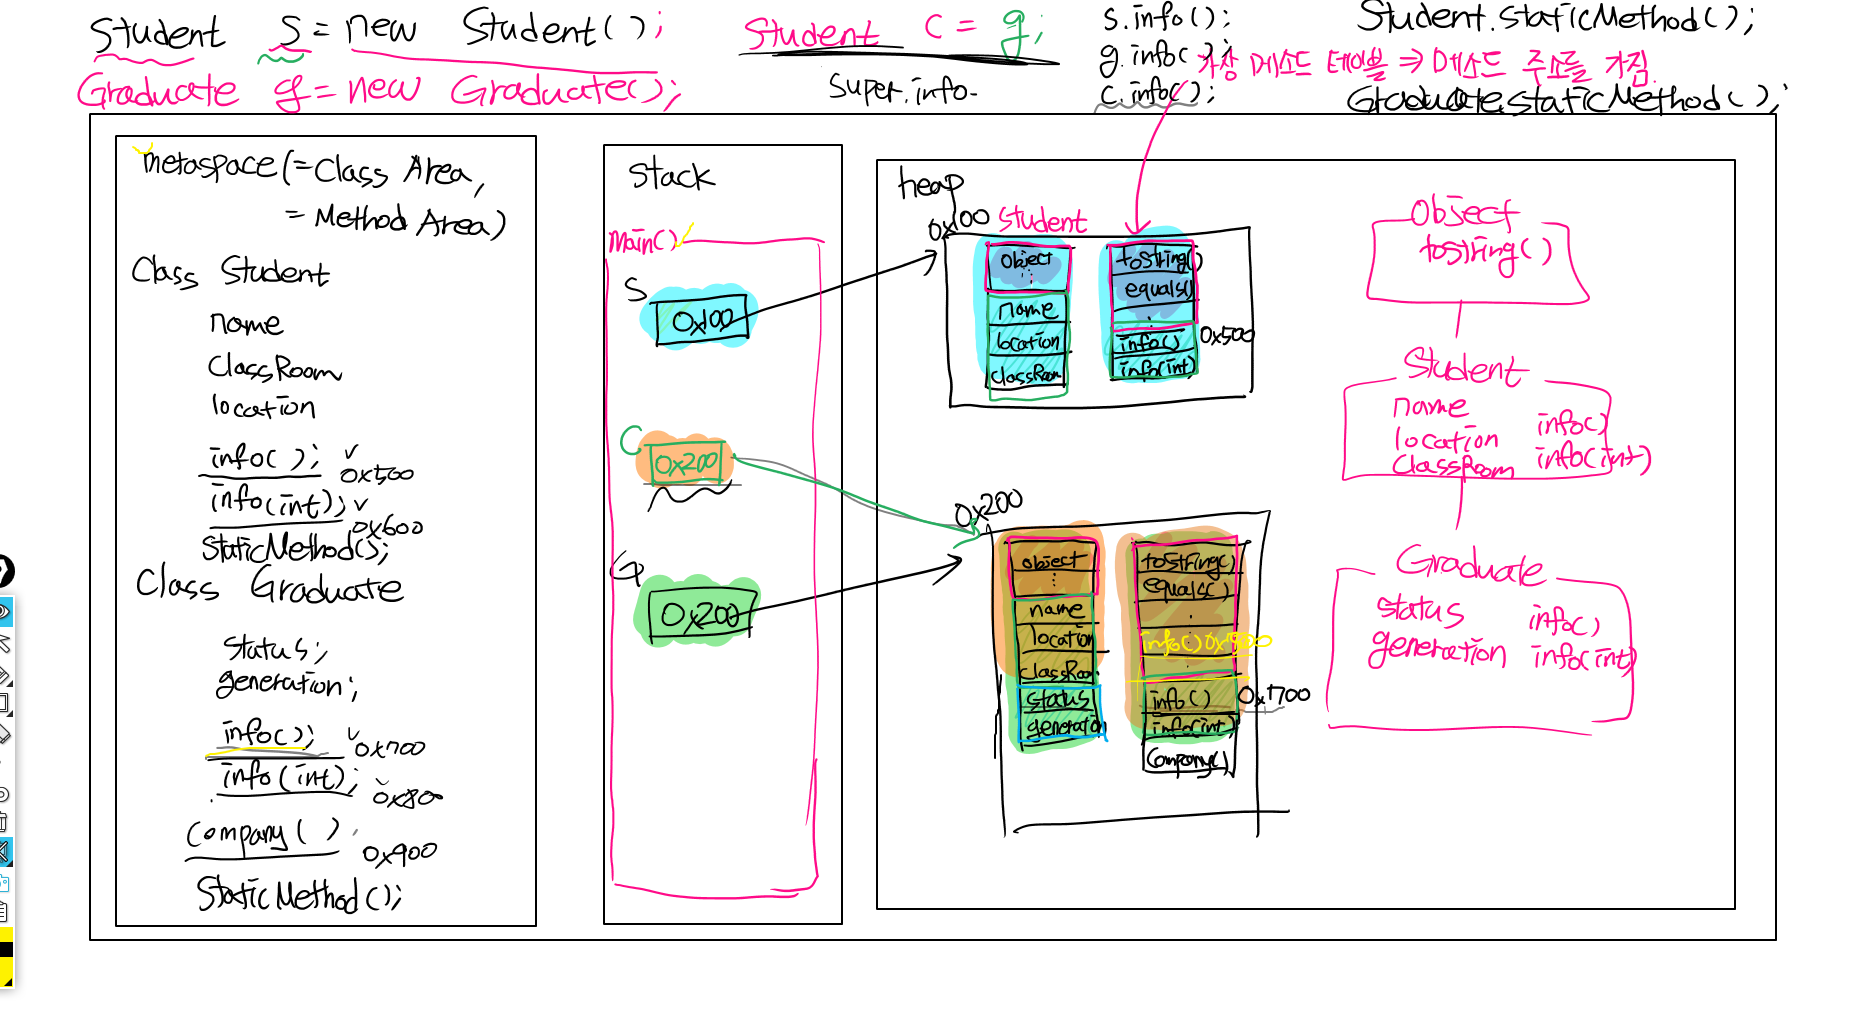 Student S = new Student();
Graduate g = new Graduate();
Student C = g;
Super.info.
s.info();
g.info();
c.info();
Student.staticMethod();
가상 메소드 테이블 ⇒ 메소드 주소를 가짐.
Graduate.staticMethod();
metaspace(=Class Area,
= Method Area)
Class Student
name
ClassRoom
location
info(); 0x500
info(int); 0x600
staticMethod();
Class Graduate
status;
generation;
info(); 0x700
info(int); 0x800
Company() 0x900
StaticMethod();
Stack
main()
S
0x100
C
0x200
G
0x200
heap
0x100 Student
object
name
location
classRoom
toString()
equals()
info() 0x500
info(int)
0x200
object
name
location
classRoom
status
generation
toString()
equals()
info()
info() 0x700
info(int)
Company()
Object
toString()
Student
name info()
location info(int)
ClassRoom
Graduate
status info()
generation info(int)